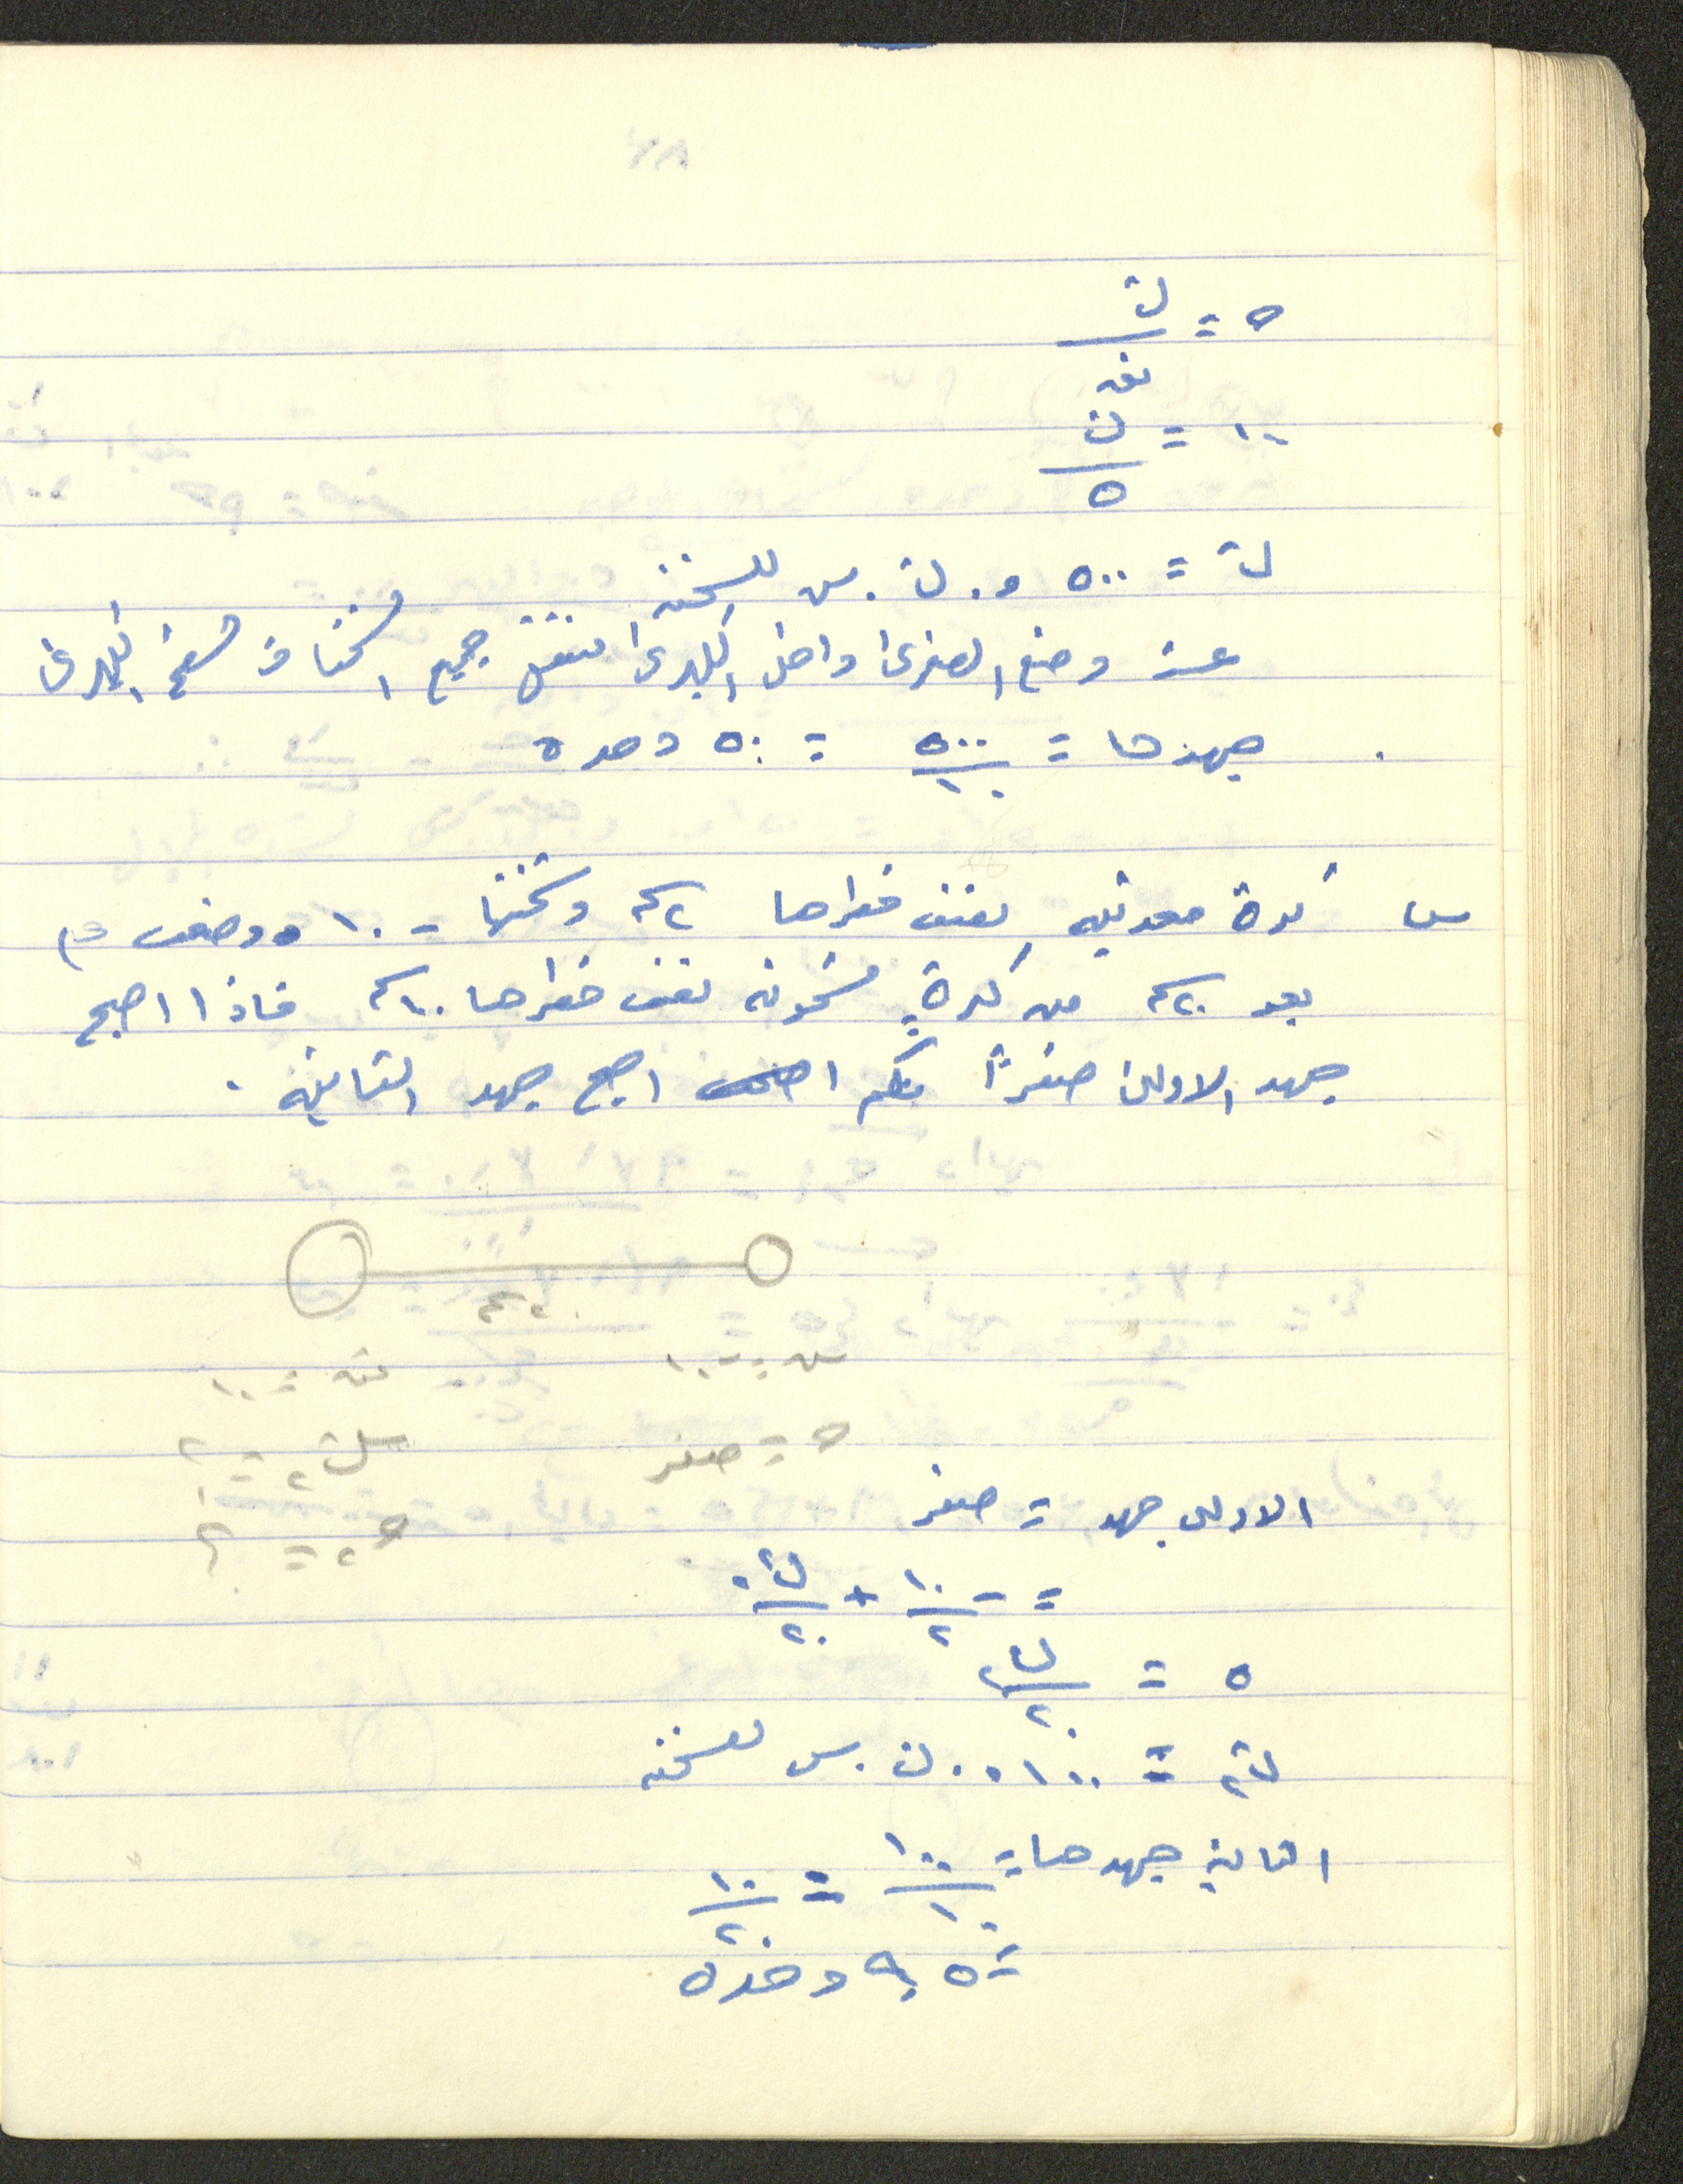 جـ = ش
نق
١٠٠ = ش
٥
ش = ٥٠٠ و. ش. س للشحنة
عند وضع الصغرى داخل الكبرى تنتقل جميع الشحنات لسطح الكبرى
جهدها = ٥٠٠ = ٥٠ وحده
١٠
س كرة معدنية نصف قطرها ٢سم وشحنتها - ١٠ وضعت على
بعد ٢٠سم من كرة مشحونه نصف قطرها ١٠سم فاذا اصبح
جهد الاولى صفراً فكم اصبح جهد الثانية .
٢٠سم
نق = ١٠
جـ = صفر
ش٢ = ؟
جـ٢ = ؟
الاولى جهد = صفر
= - ١٠ + ش٢
٢ ٢٠
٥ = ش٢
٢٠
ش٢ = ١٠٠ و. ش. س للشحنه
الثانية جهدها = ١٠٠ - ١٠
١٠ ٢٠
= ٩,٥ وحده